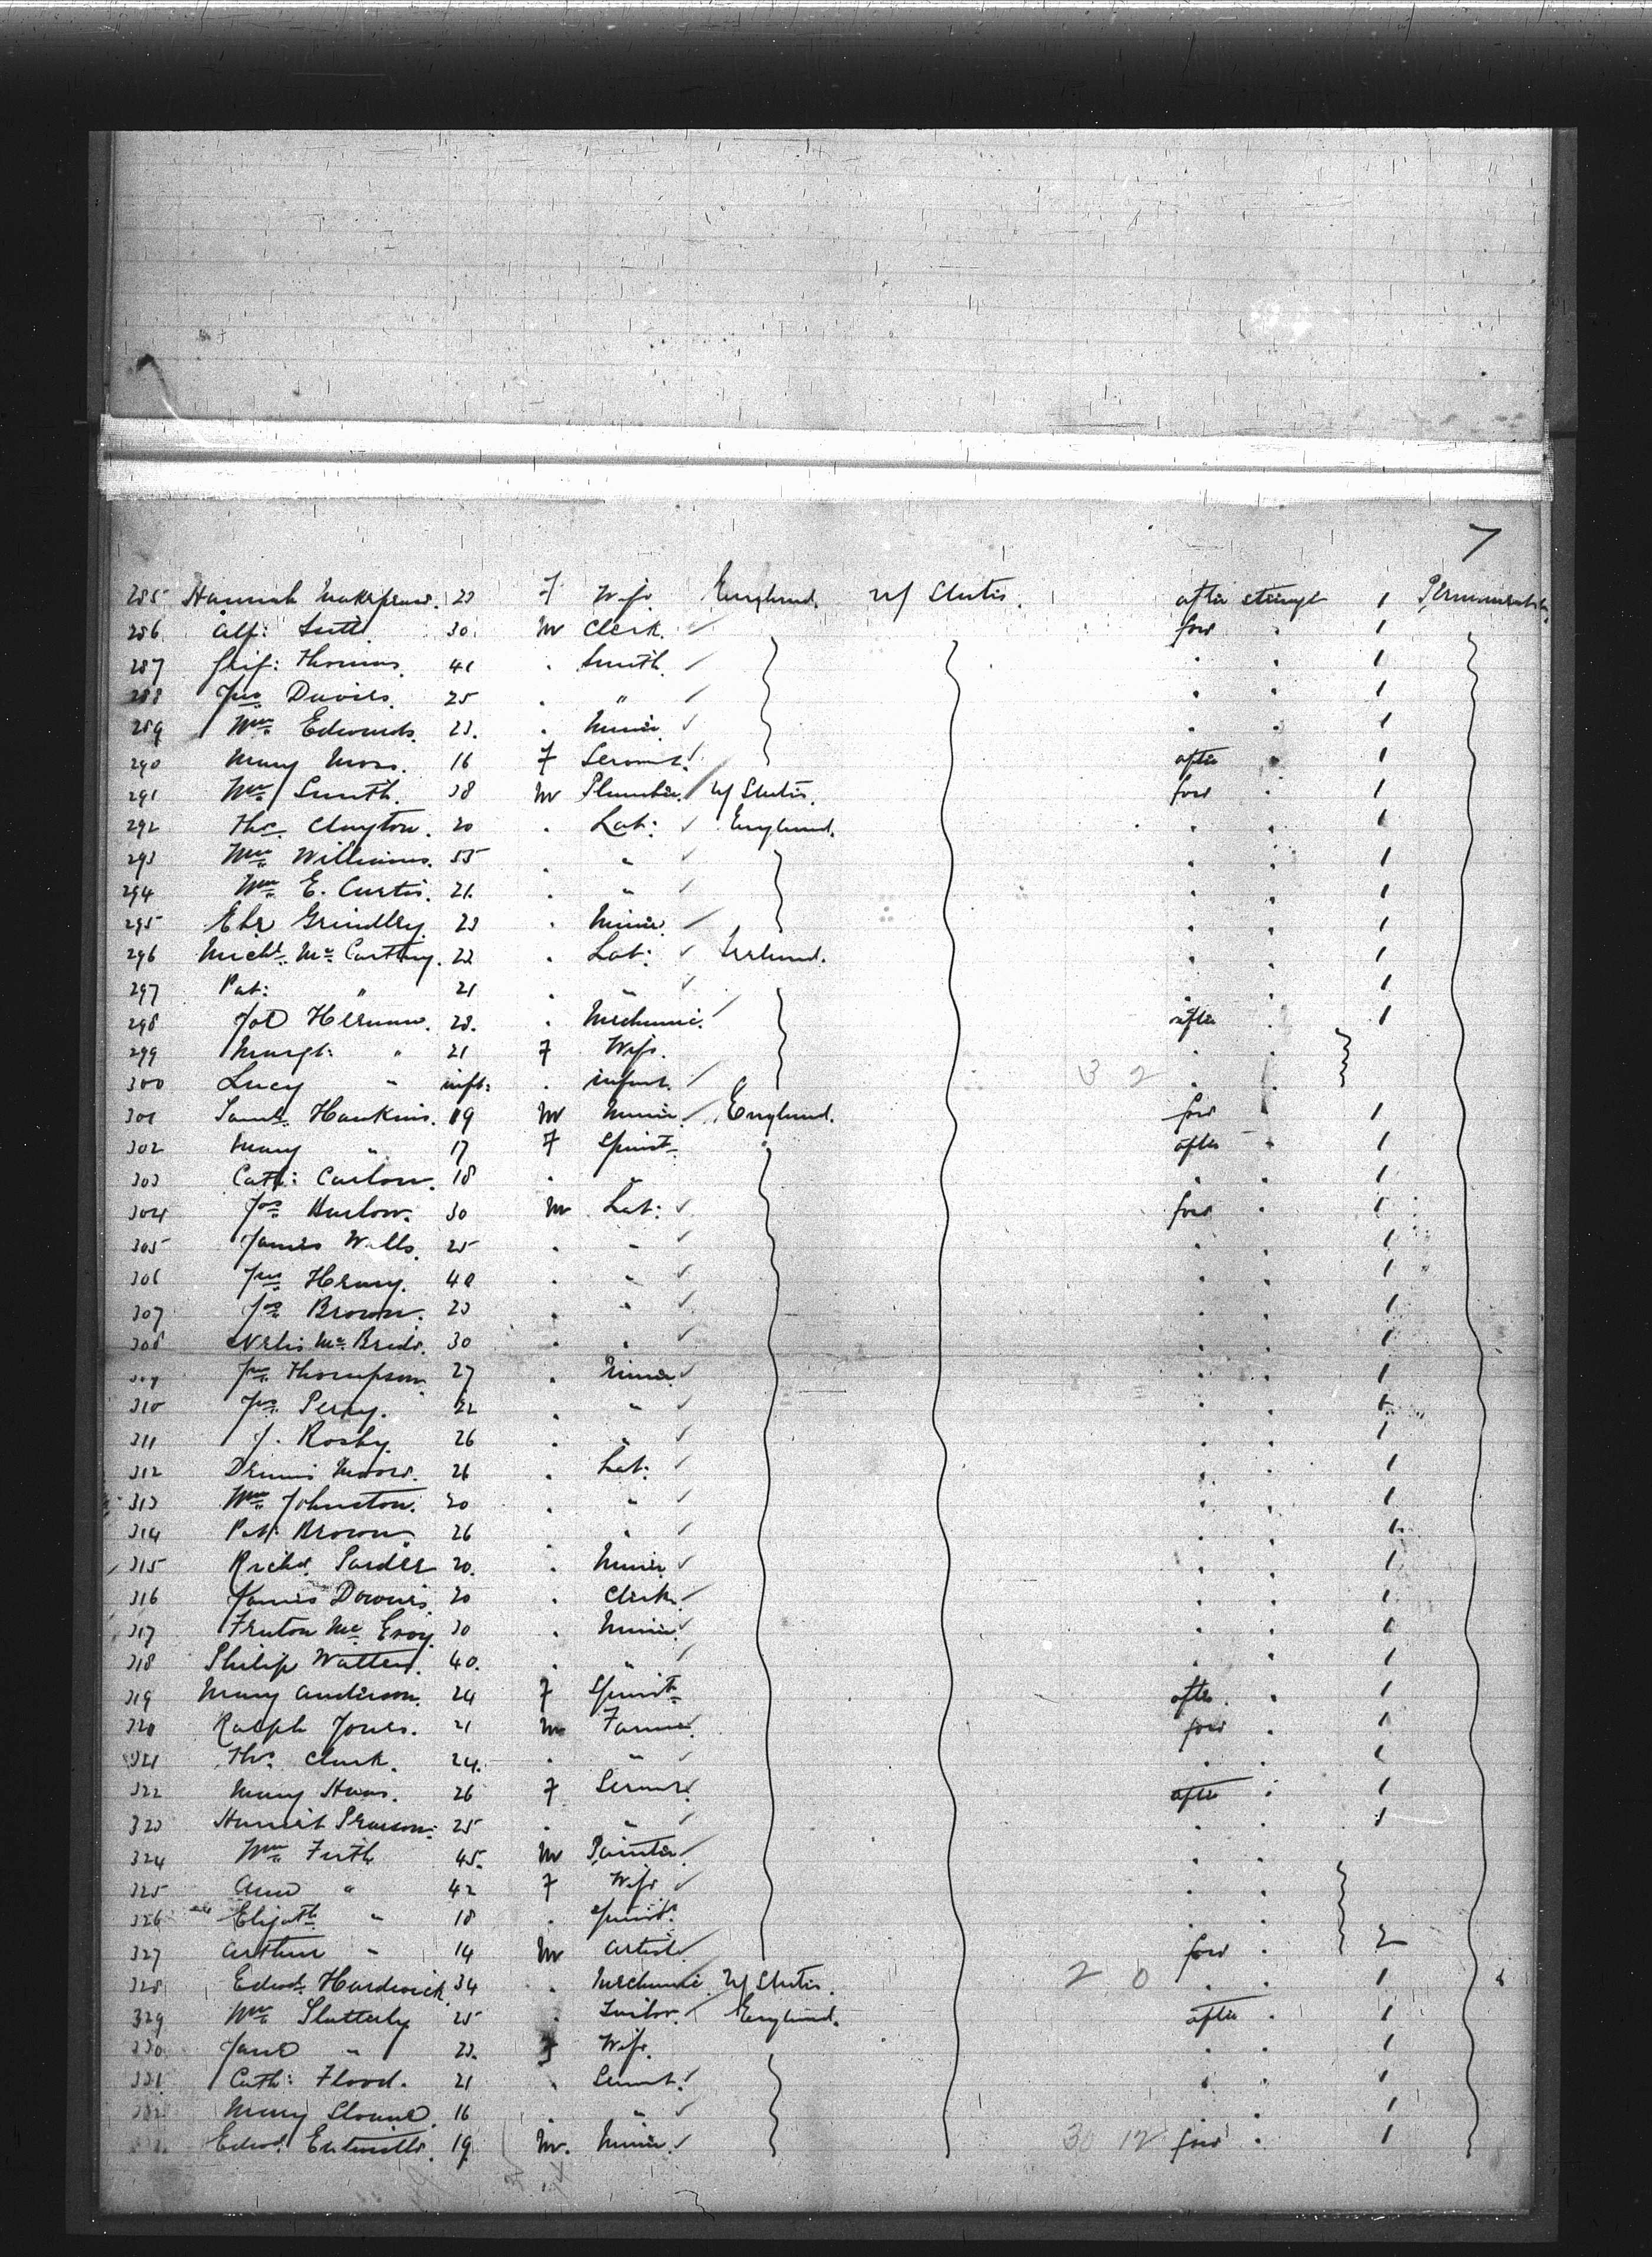 7
285 Hannah Makepeace. 23 F Wife England. U/ States. after steerage 1 Permanently
286 Alf: Sutt 30 M Clerk. forw . 1
287 Grif: Thomas. 41 . Smith 1
288 Jno Davies. 25 . " . . 1
289 Wm Edwards. 23. . Miner . . 1
290 Mary Moss. 16 F Servant. after . 1
291 Wm Smith. 38 M Plumber. U/ States. forw . 1
292 Tho. Clayton. 20 . Lab: England. . . 1
293 Wm Williams. 55 . " . . 1
294 Wm E. Curtis. 21. . " . . 1
295 Ebr Grindley. 23 . Miner. . . 1
296 Michl. Mc Carthy. 22 . Lab: Ireland. . . 1
297 Pat: " 21 . " . . 1
298 Jos Herman. 28. . Mechanic. after . 1
299 Margt: " 21 F Wife. . .
300 Lucy " inft: . infant. 3 2 . .
301 Saml. Hankins. 19 M Miner England. forw . 1
302 Mary " 17 F Spinst. " after . 1
303 Cath: Carlow. 18 . " . . 1
304 Jos Harlow. 30 M Lab: forw . 1
305 James Wells. 25 . " . . 1
306 Jno Henry. 40 . " . . 1
307 Jos Brown. 23 . " . . 1
308 Mc Bride. 30 . " . . 1
309 Jno Thompson 27 . Miner . . 1
310 Jno. Perry. 22 . " . . 1
311 J. Rosby. 26 . " . . 1
312 Dennis Moore. 26 . Lab: . . 1
313 Wm Johnston. 20 . " . . 1
314 Pat: Brown 26 . " . . 1
315 Richd. Pardee 20. . Miner . . 1
316 James Downes. 20 . Clerk. . . 1
317 Fenton Mc Evoy. 30 . Miner. . . 1
318 Philip Watters. 40. . " . . 1
319 Mary Anderson. 24 F Spinst. after . 1
320 Ralph Jones. 21 M Farmer. forw . 1
321 Tho. Clark. 24. . " . . 1
322 Mary Haas. 26 F Servant. after . 1
323 Harriet Pearson. 25 . " . . 1
324 Wm Firth 45. M Painter. . .
325 Ann " 42 F Wife . .
326 Elizath " 18 . Spinst. . .
327 Arthur " 14 M Artist forw . 2
328 Edwd. Hardwick. 34 . Mechanic. U/ States. 2 0 . . 1
329 Wm Slatterly 25 . Tailor. England. after . 1
330 Jane " 23. F Wife. . . 1
331 Cath: Flood. 21 . Servant. . . 1
332 Mary Sloane. 16 . " . . 1
333. Edwd. Entwistle. 19 M. Miner. 30 12 forw . 1